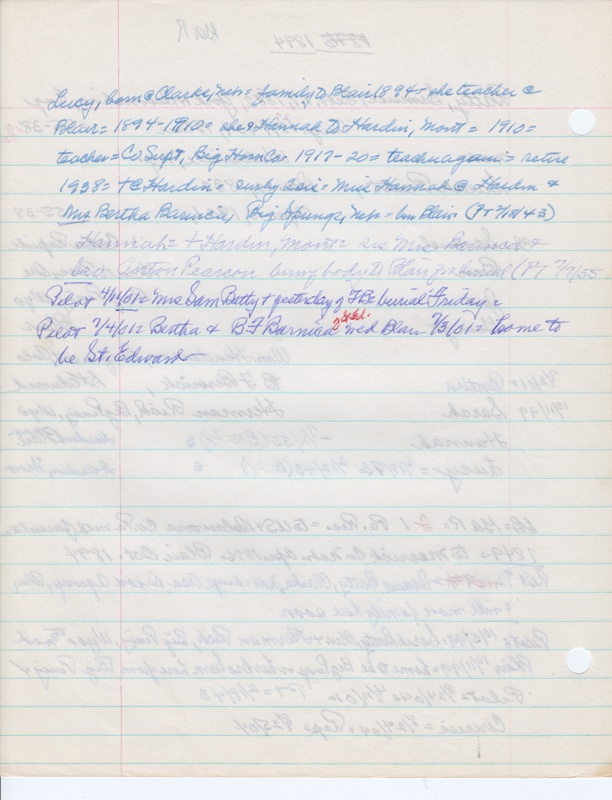 Lucy, born @ Clarks, Neb = family to Blair 1894 - she teacher @
Blair = 1894-1910 = she & Hannah to Hardin, Mont = 1910 =
teacher = Co Supt, Big Horn Co 1917-20 = teach again = retire
1938 = + @ Hardin = surv by Sis = Miss Hannah @ Hardin &
Mrs Bertha Barnica, Big Springs, Neb = bur Blair (PT 2/18/43)
Hannah = + Hardin, Mont = sis Mrs Barnica &
Anton Pearson bring body to Blair for burial (PT 7/7/55
Pilot 4/11/01 = Mrs Sam Batty + yesterday of TB = burial Friday =
Pilot 7/4/01 = Bertha & B F Barnica wed Blair 7/3/01 = home to
be St. Edward